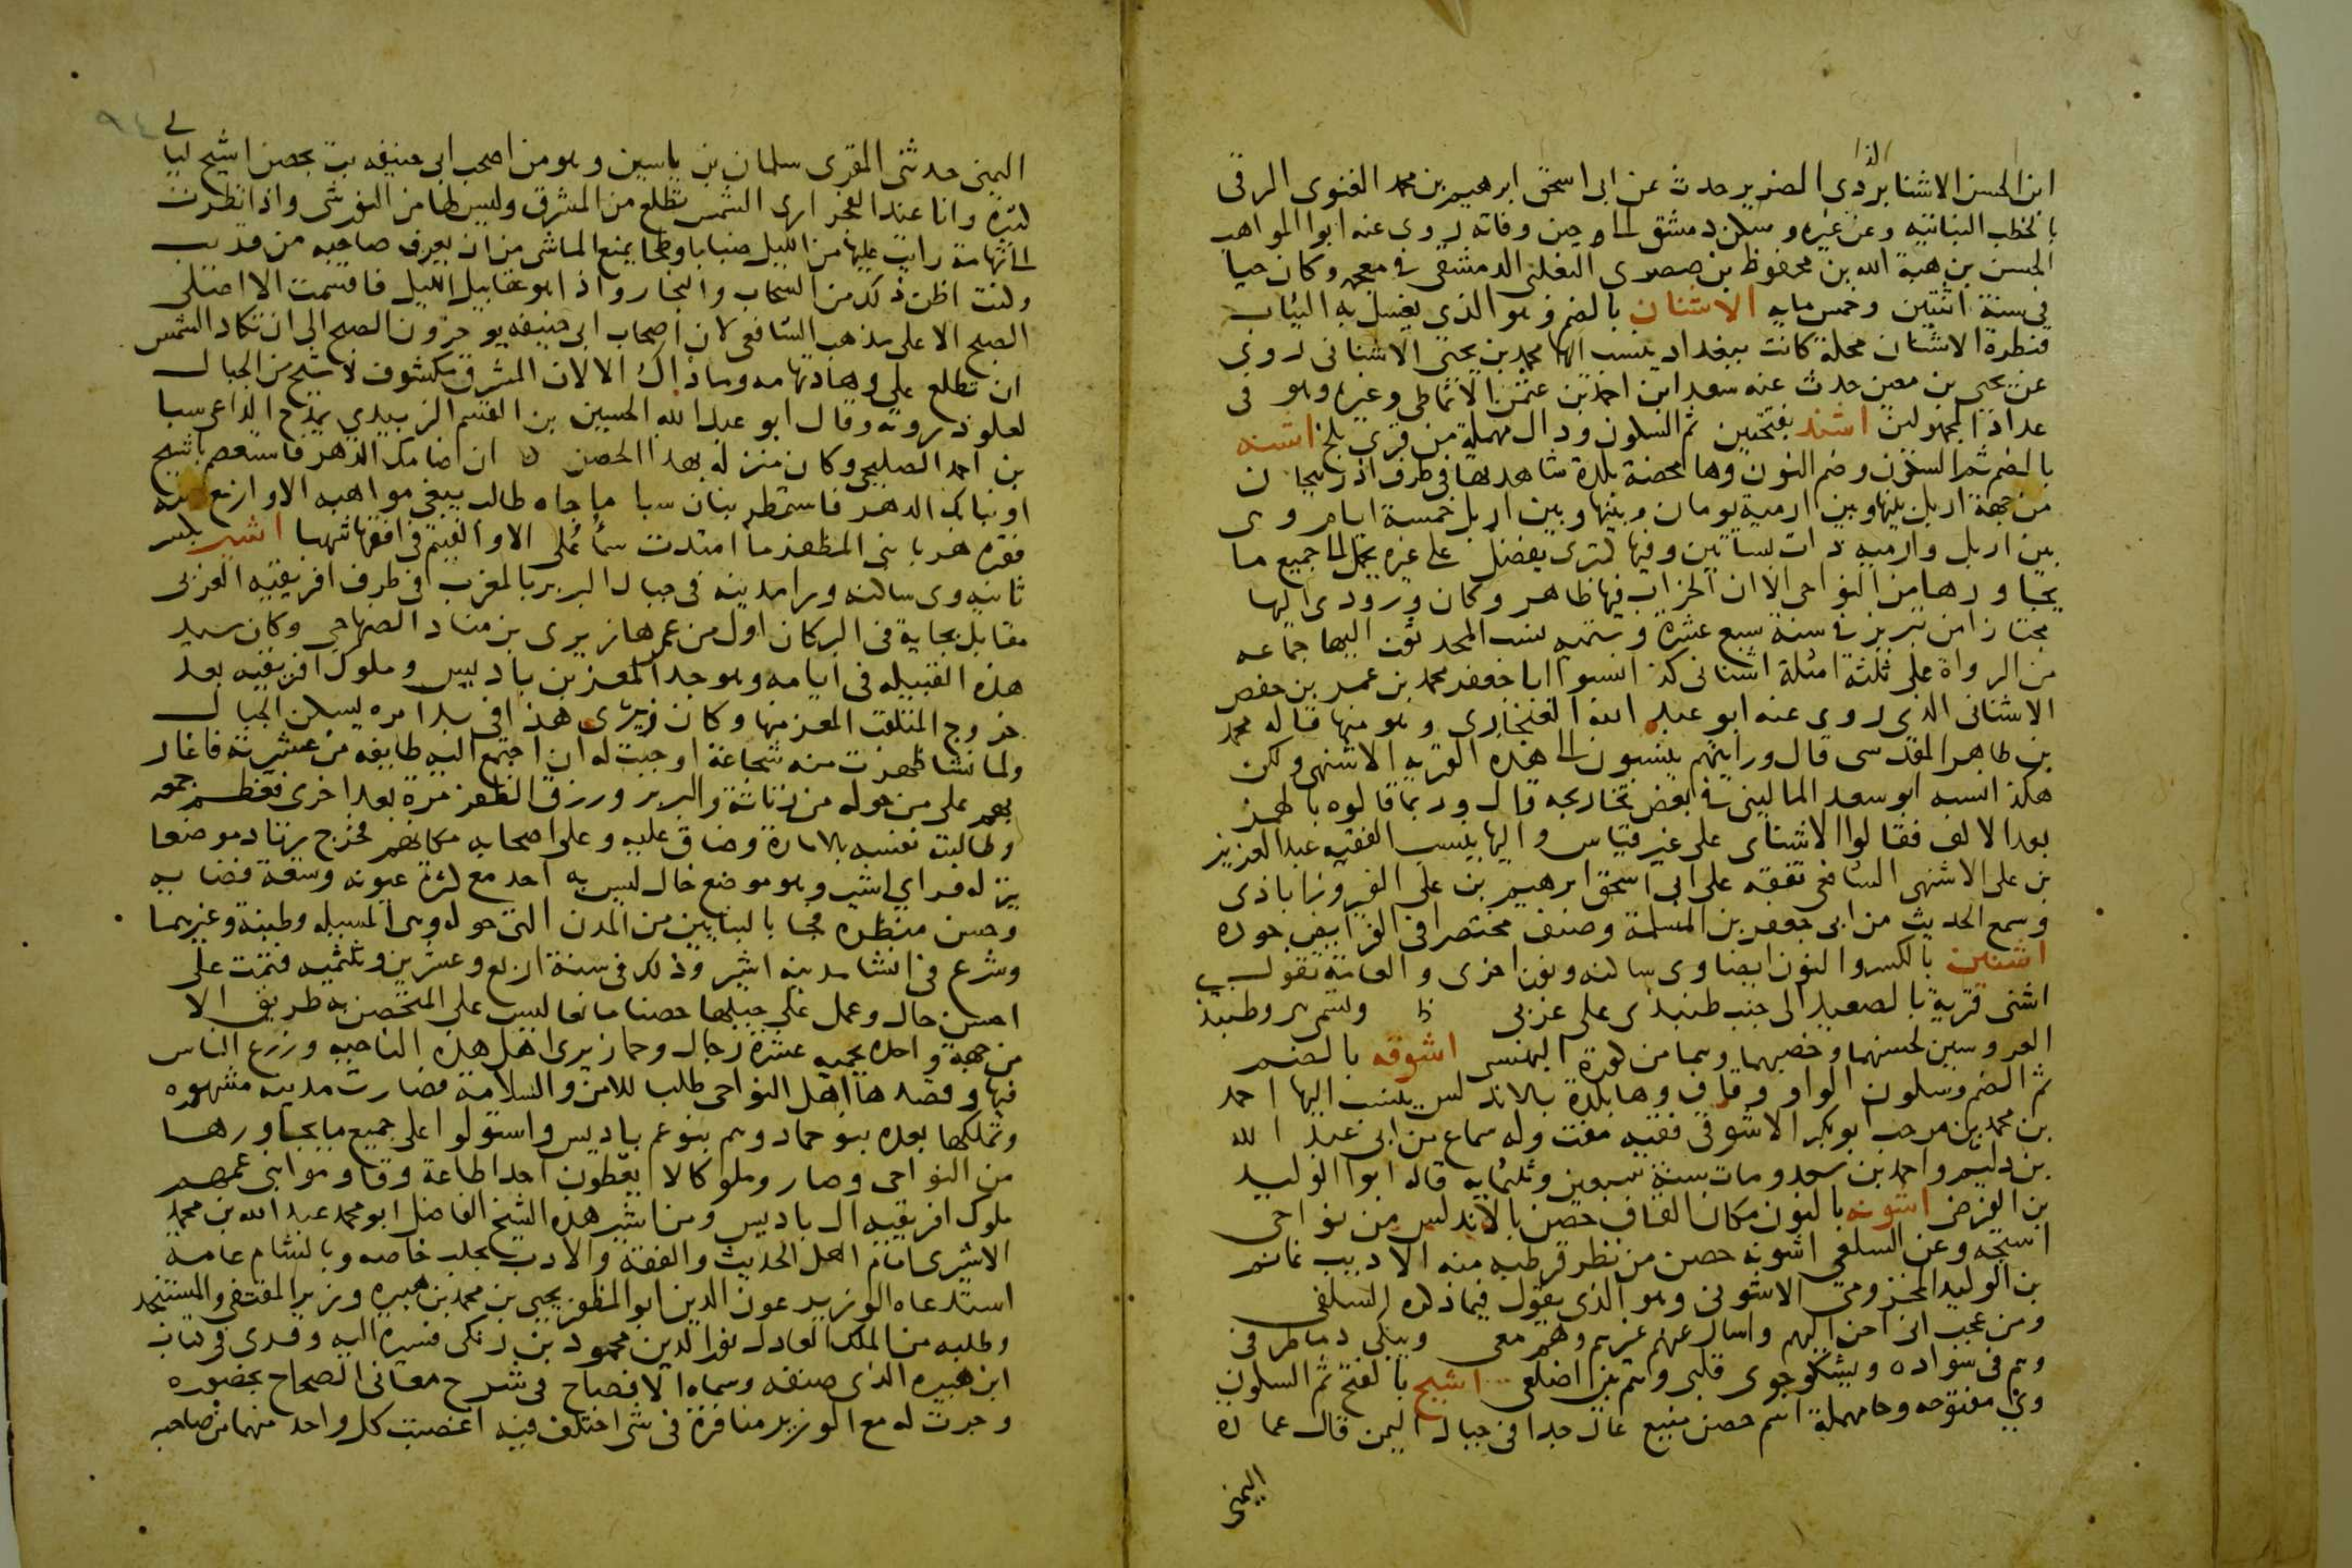 الذا
ابن الحسن الاشنابردي الضرير حدث عن ابى اسحق ابرهيم بن محمد الغنوى الرقى
بالخطب النباتيه وعن غيره وسكن دمشق الى حين وفاته روى عنه ابوا المواهب
الحسن بن هبة الله بن محفوظ بن صصرى التغلبى الدمشقى فى معجمه وكان حيا
فى سنة اثنتين وخمس مايه الاشنان بالضم وهو الذى يغسل به الثياب
قنطرة الاشنان محلة كانت ببغداد ينسب اليها محمد بن يحيى الاشنانى روى
عن يحيى بن معين حدث عنه سعد ابن احمد بن عثمن الانماطى وغيره وهو فى
عداد المجهولين اشند بفتحتين ثم السكون ودال مهملة من قرى بلخ اشنه
بالضم ثم السكون وضم النون وها محضة بلدة شاهدتها فى طرف اذربيجان
من جهة اربل بينها وبين ارمية يومان وبينها وبين اربل خمسة ايام وهى
بين اربل وارميه ذات بساتين وفيها كمثرى يفضل على غيره يحمل الى جميع ما
يجاورها من النواحى الا ان الخراب فيها ظاهر وكان ورودى اليها
مجتازا من تبريز فى سنة سبع عشرة وستميه نسب المحدثون اليها جماعه
من الرواة على ثلثة امثلة اشنانى كذا نسبوا ابا جعفر محمد بن عمر بن حفص
الاشنانى الذى روى عنه ابو عبد الله الغنجارى وهو منها قاله محمد
بن طاهر المقدسى قال ورايتهم ينسبون الى هذه القريه الاشنهى ولكن
هكذا نسبه ابو سعد المالينى فى بعض تخاريجه قال وربما قالوه بالهمز
بعد الالف فقالوا الاشنائى على غير قياس واليها ينسب الفقيه عبد العزيز
بن على الاشنهى الشافعى تفقه على ابى اسحق ابرهيم بن على الفيروزاباذى
وسمع الحديث من ابى جعفر بن المسلمة وصنف مختصرا فى الفرايض جوده
اشنين بالكسر والنون ايضا وى ساكنه ونون اخرى والعامة تقول
اشنى قرية بالصعيد الى جنب طنبذى على غربى وتسمى هى وطنبذ
العروسين لحسنهما وخصبهما وهما من كورة البهنسى اشوقه بالضم
ثم الضم وسكون الواو وقاف وها بلدة بالاندلس ينسب اليها احمد
بن محمد بن مرحب ابو بكر الاشوقى فقيه مفت وله سماع من ابى عبد الله
بن دليم واحمد بن سعد ومات سنة سبعين وثلثمايه قاله ابوا الوليد
بن الفرضى اشونه بالنون مكان القاف حصن بالاندلس من نواحى
استجه وعن السلفى اشونه حصن من نظر قرطبه منه الاديب غانم
بن الوليد المخزومى الاشونى وهو الذى يقول فيما ذكره السلفى
ومن عجب انى احن اليهم واسال عنهم غيرهم وهم معى وتبكى دما طرفى
وهم فى سواده ويشكو جوى قلبى وهم بين اضلعى اشيح بالفتح ثم السكون
وى مفتوحه وحا مهملة اسم حصن منيع عال جدا فى جبال اليمن قال عماره
اليمنى
٩٤
اليمنى حدثنى المقرى سلمان بن ياسين وهو من اصحب ابى حنيفه بت بحصن اشيح ليالى
كثيرة وانا عند الفجر ارى الشمس تطلع من المشرق وليس لها من النور شى واذا نظرت
الى تهامة رايت عليها من الليل ضبابا وطخا يمنع الماشى من ان يعرف صاحبه من قريب
وكنت اظن ذلك من السحاب والبخار واذا هو عقابيل الليل فاقسمت الا اصلى
الصبح الا على مذهب الشافعى لان اصحاب ابى حنيفه يوخرون الصبح الى ان تكاد الشمس
ان تطلع على وهاد تهامه وما ذاك الا لان المشرق مكشوف لاشيح من الجبال
لعلو ذروته وقال ابو عبد الله الحسين بن القسم الزبيدي يمدح الداعى سبا
بن احمد الصليحى وكان منزله بهذا الحصن ان ضامك الدهر فاستعصم باشيح
او نبا بك الدهر فاستمطر بنان سبا ما جاه طالب يبغى مواهبه الا وازمع منه
فقره هربا بنى المظفر ما امتدت سماء على الا والفيتم فى افقها شهبا اشير بكسر
ثانيه وى ساكنه ورا مدينه فى جبال البربر بالمغرب فى طرف افريقيه الغربى
مقابل بجاية فى البر كان اول من عمرها زيرى بن مناد الصنهاجى وكان سيد
هذه القبيله فى ايامه وهو جد المعز بن باديس وملوك افريقيه بعد
خروج المتلقب المعز منها وكان زيرى هذا فى بدا امره يسكن الجبال
ولما نشا ظهرت منه شجاعة اوجبت له ان اجتمع اليه طايفه من عشيرته فاغار
بهم على من حوله من زناتة والبربر ورزق الظفر مرة بعد اخرى فعظم جمعه
وطالبته نفسه بالامارة وضاق عليه وعلى اصحابه مكانهم فخرج يرتاد موضعا
ينزله فراى اشير وهو موضع خال ليس به احد مع كثرة عيونه وسعة فضايه
وحسن منظره فجا بالبنايين من المدن التى حوله وهى المسيله وطبنة وغيرهما
وشرع فى انشا مدينه اشير وذلك فى سنة اربع وعشرين وثلثميه فتمت على
احسن حال وعمل على جبلها حصنا مانعا ليس على المتحصن به طريق الا
من جهة واحده يحميه عشرة رجال وحما زيرى اهل هذه الناحيه وزرع الناس
فيها وقصدها اهل النواحى طلب للامن والسلامة فصارت مدينه مشهوره
وتملكها بعده بنو حماد وهم بنو عم باديس واستولوا على جميع ما يجاورها
من النواحى وصاروا ملوكا لا يعطون احدا طاعة وقاوموا بنى عمهم
ملوك افريقيه ال باديس ومن اشير هذه الشيخ الفاضل ابو محمد عبد الله بن محمد
الاشيرى امام اهل الحديث والفقه والادب بحلب خاصه وبالشام عامة
استدعاه الوزير عون الدين ابو المظفر يحيى بن محمد بن هبيره وزير المقتفى والمستنجد
وطلبه من الملك العادل نور الدين محمود بن زنكى فسيره اليه وقرى كتاب
ابن هبيره الذى صنفه وسماه الافصاح فى شرح معانى الصحاح بحضوره
وجرت له مع الوزير منافرة فى شى اختلف فيه اغضبت كل واحد منهما من صاحبه